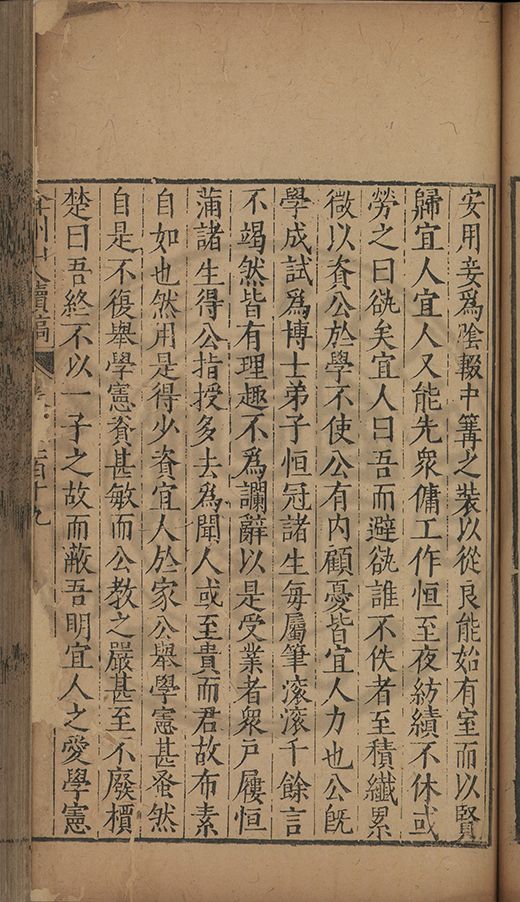 安用妾爲隂輟中篝之裝以從良能始有室而以賢
歸宜人宜人又能先衆傭工作恒至夜紡績不休或
勞之曰谻矣宜人曰吾而避谻誰不佚者至積纖累
微以資公於學不使公有内顧憂皆宜人力也公既
學成試爲博士弟子恒冠諸生每屬筆滚滚千餘言
不竭然皆有理趣不爲讕辭以是受業者衆戸屨恒
蒲諸生得公指授多去爲聞人或至貴而君故布素
自如也然用是得少資宜人於家公舉學憲甚蚤然
自是不復舉學憲資甚敏而公教之嚴甚至不廢檟
楚曰吾終不以一子之故而蔽吾明宜人之愛學憲
州山人續稿 百十九